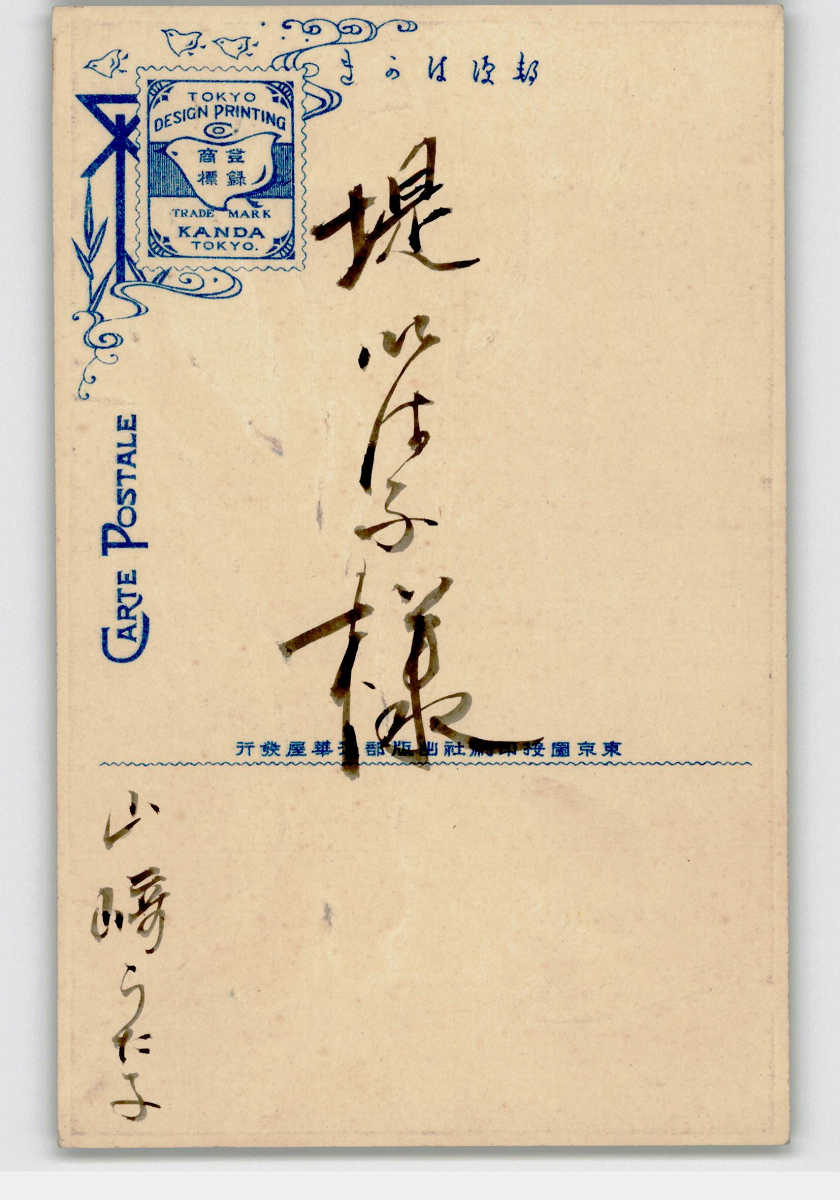 郵便はかき
TOKYO
DESIGN PRINTING
Co
登録
商標
TRADE MARK
KANDA
TOKYO.
CARTE POSTALE
堤 子様
東京圖按印刷社出版部 華屋發行
山﨑うた子